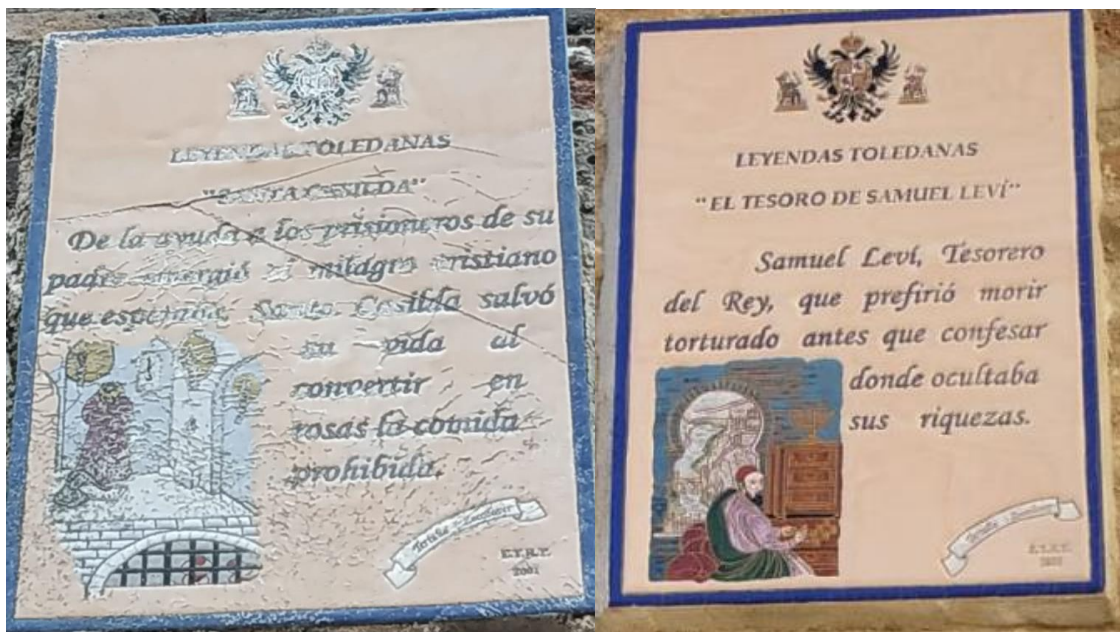 LEYENDAS TOLEDANAS
"SANTA CASILDA"
De la ayuda a los prisioneros de su
padre emergió el milagro cristiano
que esperaba. Santa Casilda salvó
su vida al
convertir en
rosas la comida
prohibida.
Tertulia
E.T.R.T.
2001
LEYENDAS TOLEDANAS
"EL TESORO DE SAMUEL LEVÍ"
Samuel Leví, Tesorero
del Rey, que prefirió morir
torturado antes que confesar
donde ocultaba
sus riquezas.